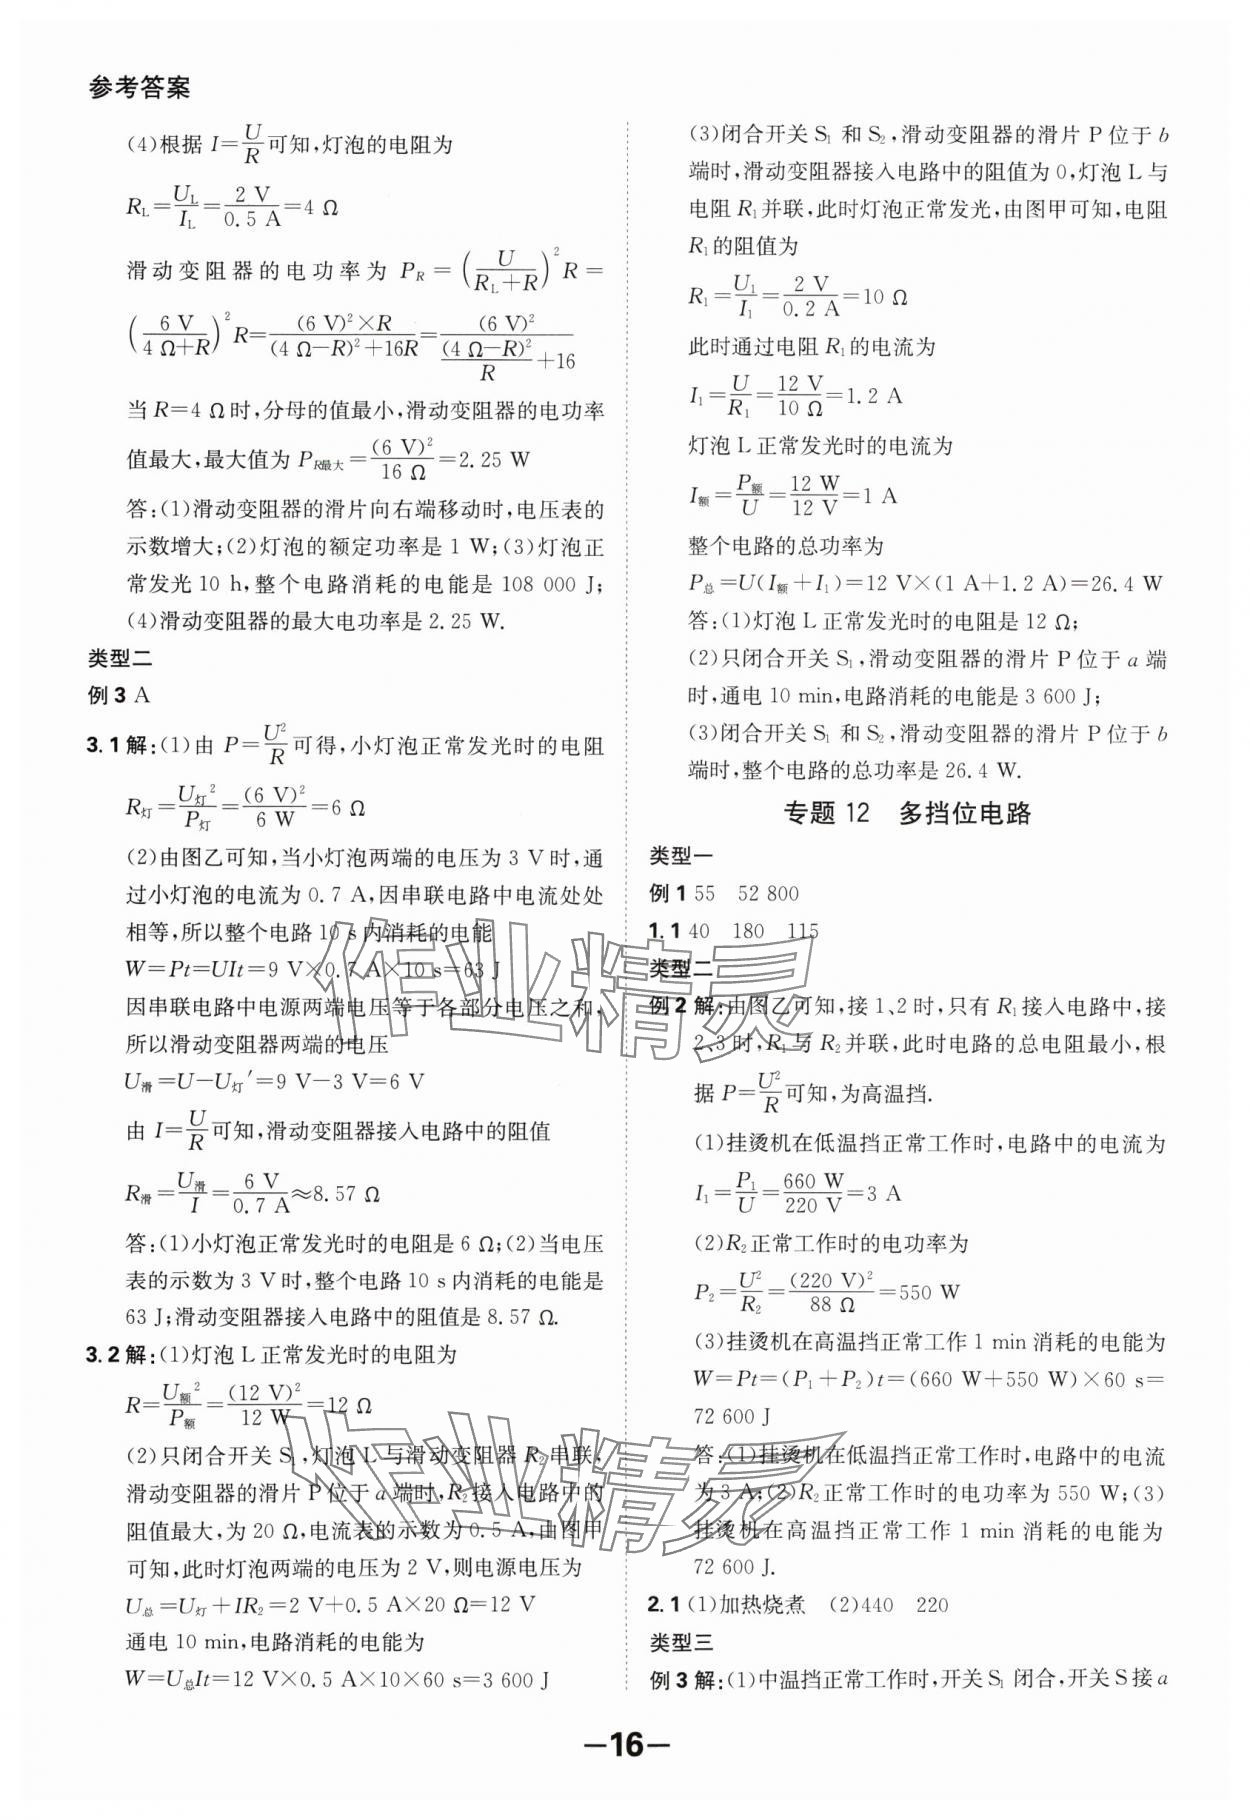 参考答案
(4)根据 I=U/R可知,灯泡的电阻为
R_L=U_L/I_L=2 V/0.5 A=4 Ω
滑动变阻器的电功率为 P_R=(U/(R_L+R))²R=
(6 V/(4 Ω+R))²R=(6 V)²×R/((4 Ω−R)²+16R)=(6 V)²/((4 Ω−R)²/R+16)
当 R=4 Ω时,分母的值最小,滑动变阻器的电功率
值最大,最大值为 P_R最大=(6 V)²/16 Ω=2.25 W
答:(1)滑动变阻器的滑片向右端移动时,电压表的
示数增大;(2)灯泡的额定功率是 1 W;(3)灯泡正
常发光 10 h,整个电路消耗的电能是 108 000 J;
(4)滑动变阻器的最大电功率是 2.25 W.
类型二
例 3 A
3.1 解:(1)由 P=U²/R可得,小灯泡正常发光时的电阻
R灯=U灯²/P灯=(6 V)²/6 W=6 Ω
(2)由图乙可知,当小灯泡两端的电压为 3 V时,通
过小灯泡的电流为 0.7 A,因串联电路中电流处处
相等,所以整个电路 10 s内消耗的电能
W=Pt=UIt=9 V×0.7 A×10 s=63 J
因串联电路中电源两端电压等于各部分电压之和,
所以滑动变阻器两端的电压
U滑=U−U灯′=9 V−3 V=6 V
由 I=U/R可知,滑动变阻器接入电路中的阻值
R滑=U滑/I=6 V/0.7 A≈8.57 Ω
答:(1)小灯泡正常发光时的电阻是 6 Ω;(2)当电压
表的示数为 3 V时,整个电路 10 s内消耗的电能是
63 J;滑动变阻器接入电路中的阻值是 8.57 Ω.
3.2 解:(1)灯泡 L 正常发光时的电阻为
R=U额²/P额=(12 V)²/12 W=12 Ω
(2)只闭合开关 S₁,灯泡 L 与滑动变阻器 R₂ 串联,
滑动变阻器的滑片 P位于 a 端时,R₂接入电路中的
阻值最大,为 20 Ω,电流表的示数为 0.5 A,由图甲
可知,此时灯泡两端的电压为 2 V,则电源电压为
U总=U灯+IR₂=2 V+0.5 A×20 Ω=12 V
通电 10 min,电路消耗的电能为
W=U总It=12 V×0.5 A×10×60 s=3 600 J
(3)闭合开关 S₁ 和 S₂,滑动变阻器的滑片 P 位于 b
端时,滑动变阻器接入电路中的阻值为 0,灯泡 L 与
电阻 R₁并联,此时灯泡正常发光,由图甲可知,电阻
R₁的阻值为
R₁=U₁/I₁=2 V/0.2 A=10 Ω
此时通过电阻 R₁的电流为
I₁=U/R₁=12 V/10 Ω=1.2 A
灯泡 L 正常发光时的电流为
I额=P额/U=12 W/12 V=1 A
整个电路的总功率为
P总=U(I额+I₁)=12 V×(1 A+1.2 A)=26.4 W
答:(1)灯泡 L 正常发光时的电阻是 12 Ω;
(2)只闭合开关 S₁,滑动变阻器的滑片 P位于 a 端
时,通电 10 min,电路消耗的电能是 3 600 J;
(3)闭合开关 S₁ 和 S₂,滑动变阻器的滑片 P 位于 b
端时,整个电路的总功率是 26.4 W.
专题 12 多挡位电路
类型一
例 1 55 52 800
1.1 40 180 115
类型二
例 2 解:由图乙可知,接 1、2 时,只有 R₁接入电路中,接
2、3时,R₁与 R₂并联,此时电路的总电阻最小,根
据 P=U²/R可知,为高温挡.
(1)挂烫机在低温挡正常工作时,电路中的电流为
I₁=P₁/U=660 W/220 V=3 A
(2)R₂正常工作时的电功率为
P₂=U²/R₂=(220 V)²/88 Ω=550 W
(3)挂烫机在高温挡正常工作 1 min 消耗的电能为
W=Pt=(P₁+P₂)t=(660 W+550 W)×60 s=
72 600 J
答:(1)挂烫机在低温挡正常工作时,电路中的电流
为 3 A;(2)R₂正常工作时的电功率为 550 W;(3)
挂烫机在高温挡正常工作 1 min 消耗的电能为
72 600 J.
2.1 (1)加热烧煮 (2)440 220
类型三
例 3 解:(1)中温挡正常工作时,开关 S₁ 闭合,开关 S 接 a
—16—
作业精灵
作业精灵